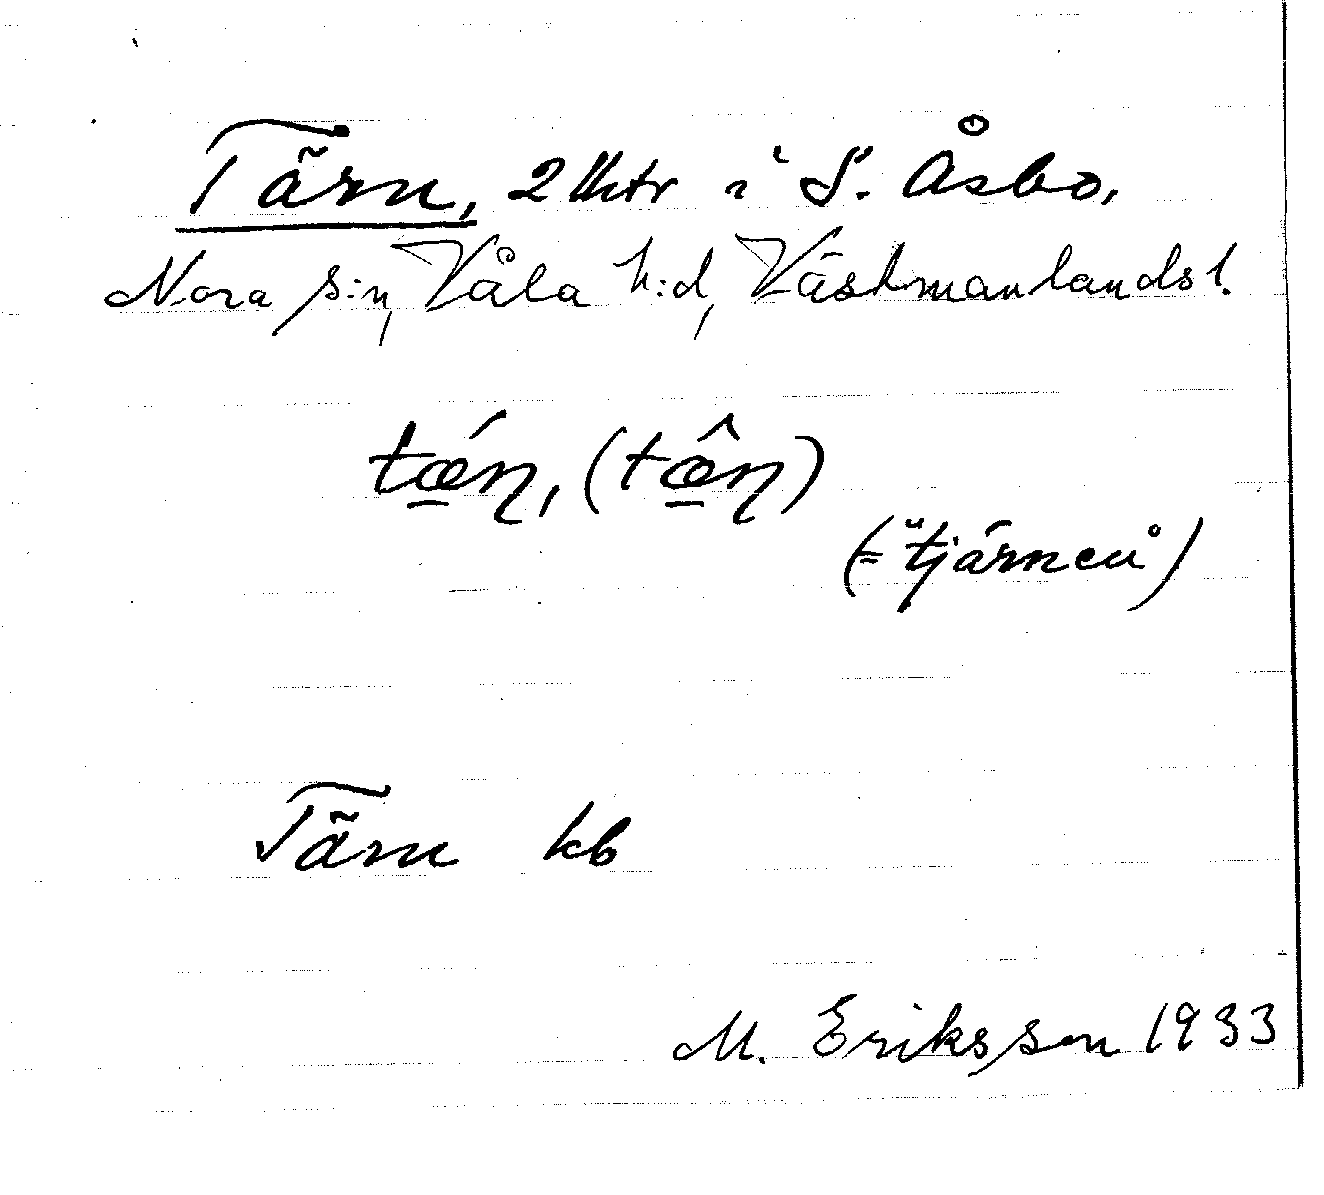 Tärn, 2 lhtr i S. Åsbo,
Nora s:n, Våla h:d, Västmanlands l.
tǽɳ, (tæ̂ɳ)
(= "tjärnen")
Tärn kb
M. Eriksson 1933